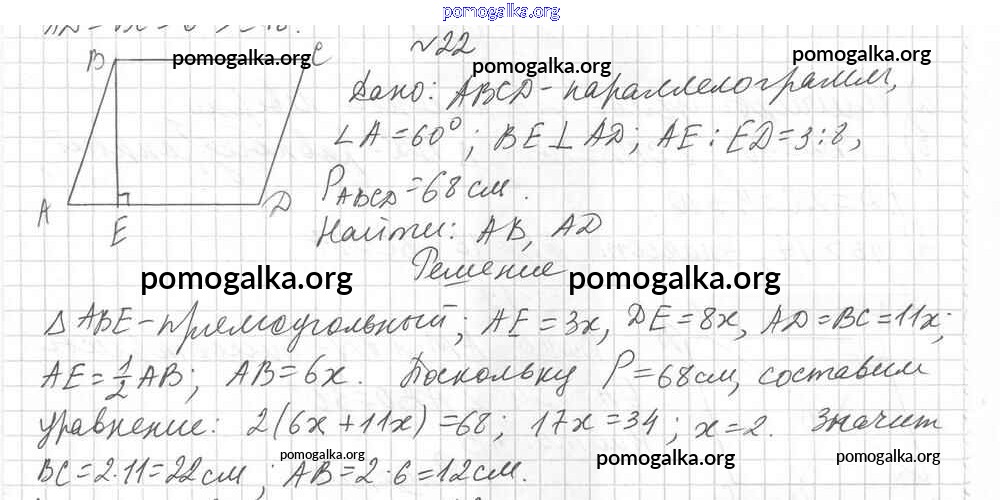 pomogalka.org
№22
B pomogalka.org C
pomogalka.org
pomogalka.org
Дано: ABCD - параллелограмм,
∠A = 60°; BE ⊥ AD; AE : ED = 3:8,
P ABCD = 68 см.
A E D
Найти: AB, AD
Решение
pomogalka.org pomogalka.org
Δ ABE - прямоугольный; AE = 3x, DE = 8x, AD = BC = 11x;
AE = 1/2 AB; AB = 6x. Поскольку P = 68 см, составим
уравнение: 2(6x + 11x) = 68; 17x = 34; x = 2. Значит
BC = 2·11 = 22 см; AB = 2·6 = 12 см.
pomogalka.org pomogalka.org pomogalka.org